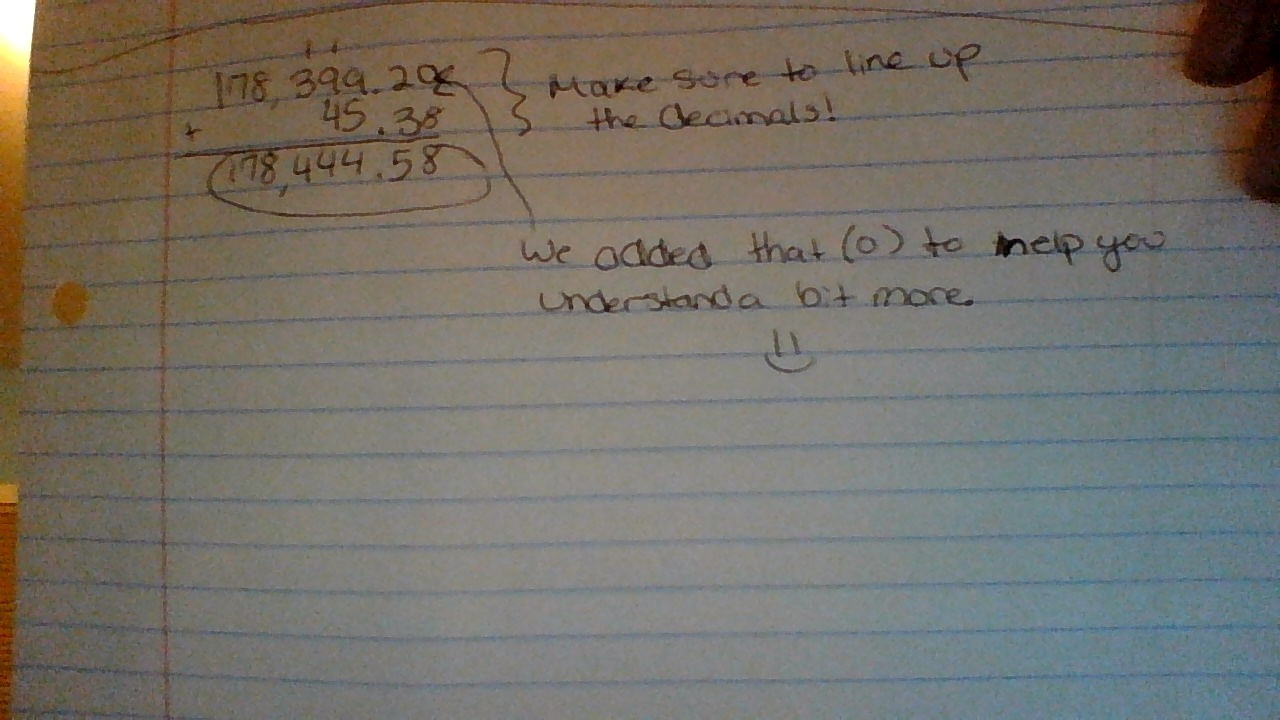 1 1
178,399.20
Make sure to line up
+ 45.38
the decimals!
178,444.58
We added that (0) to help you
understand a bit more.